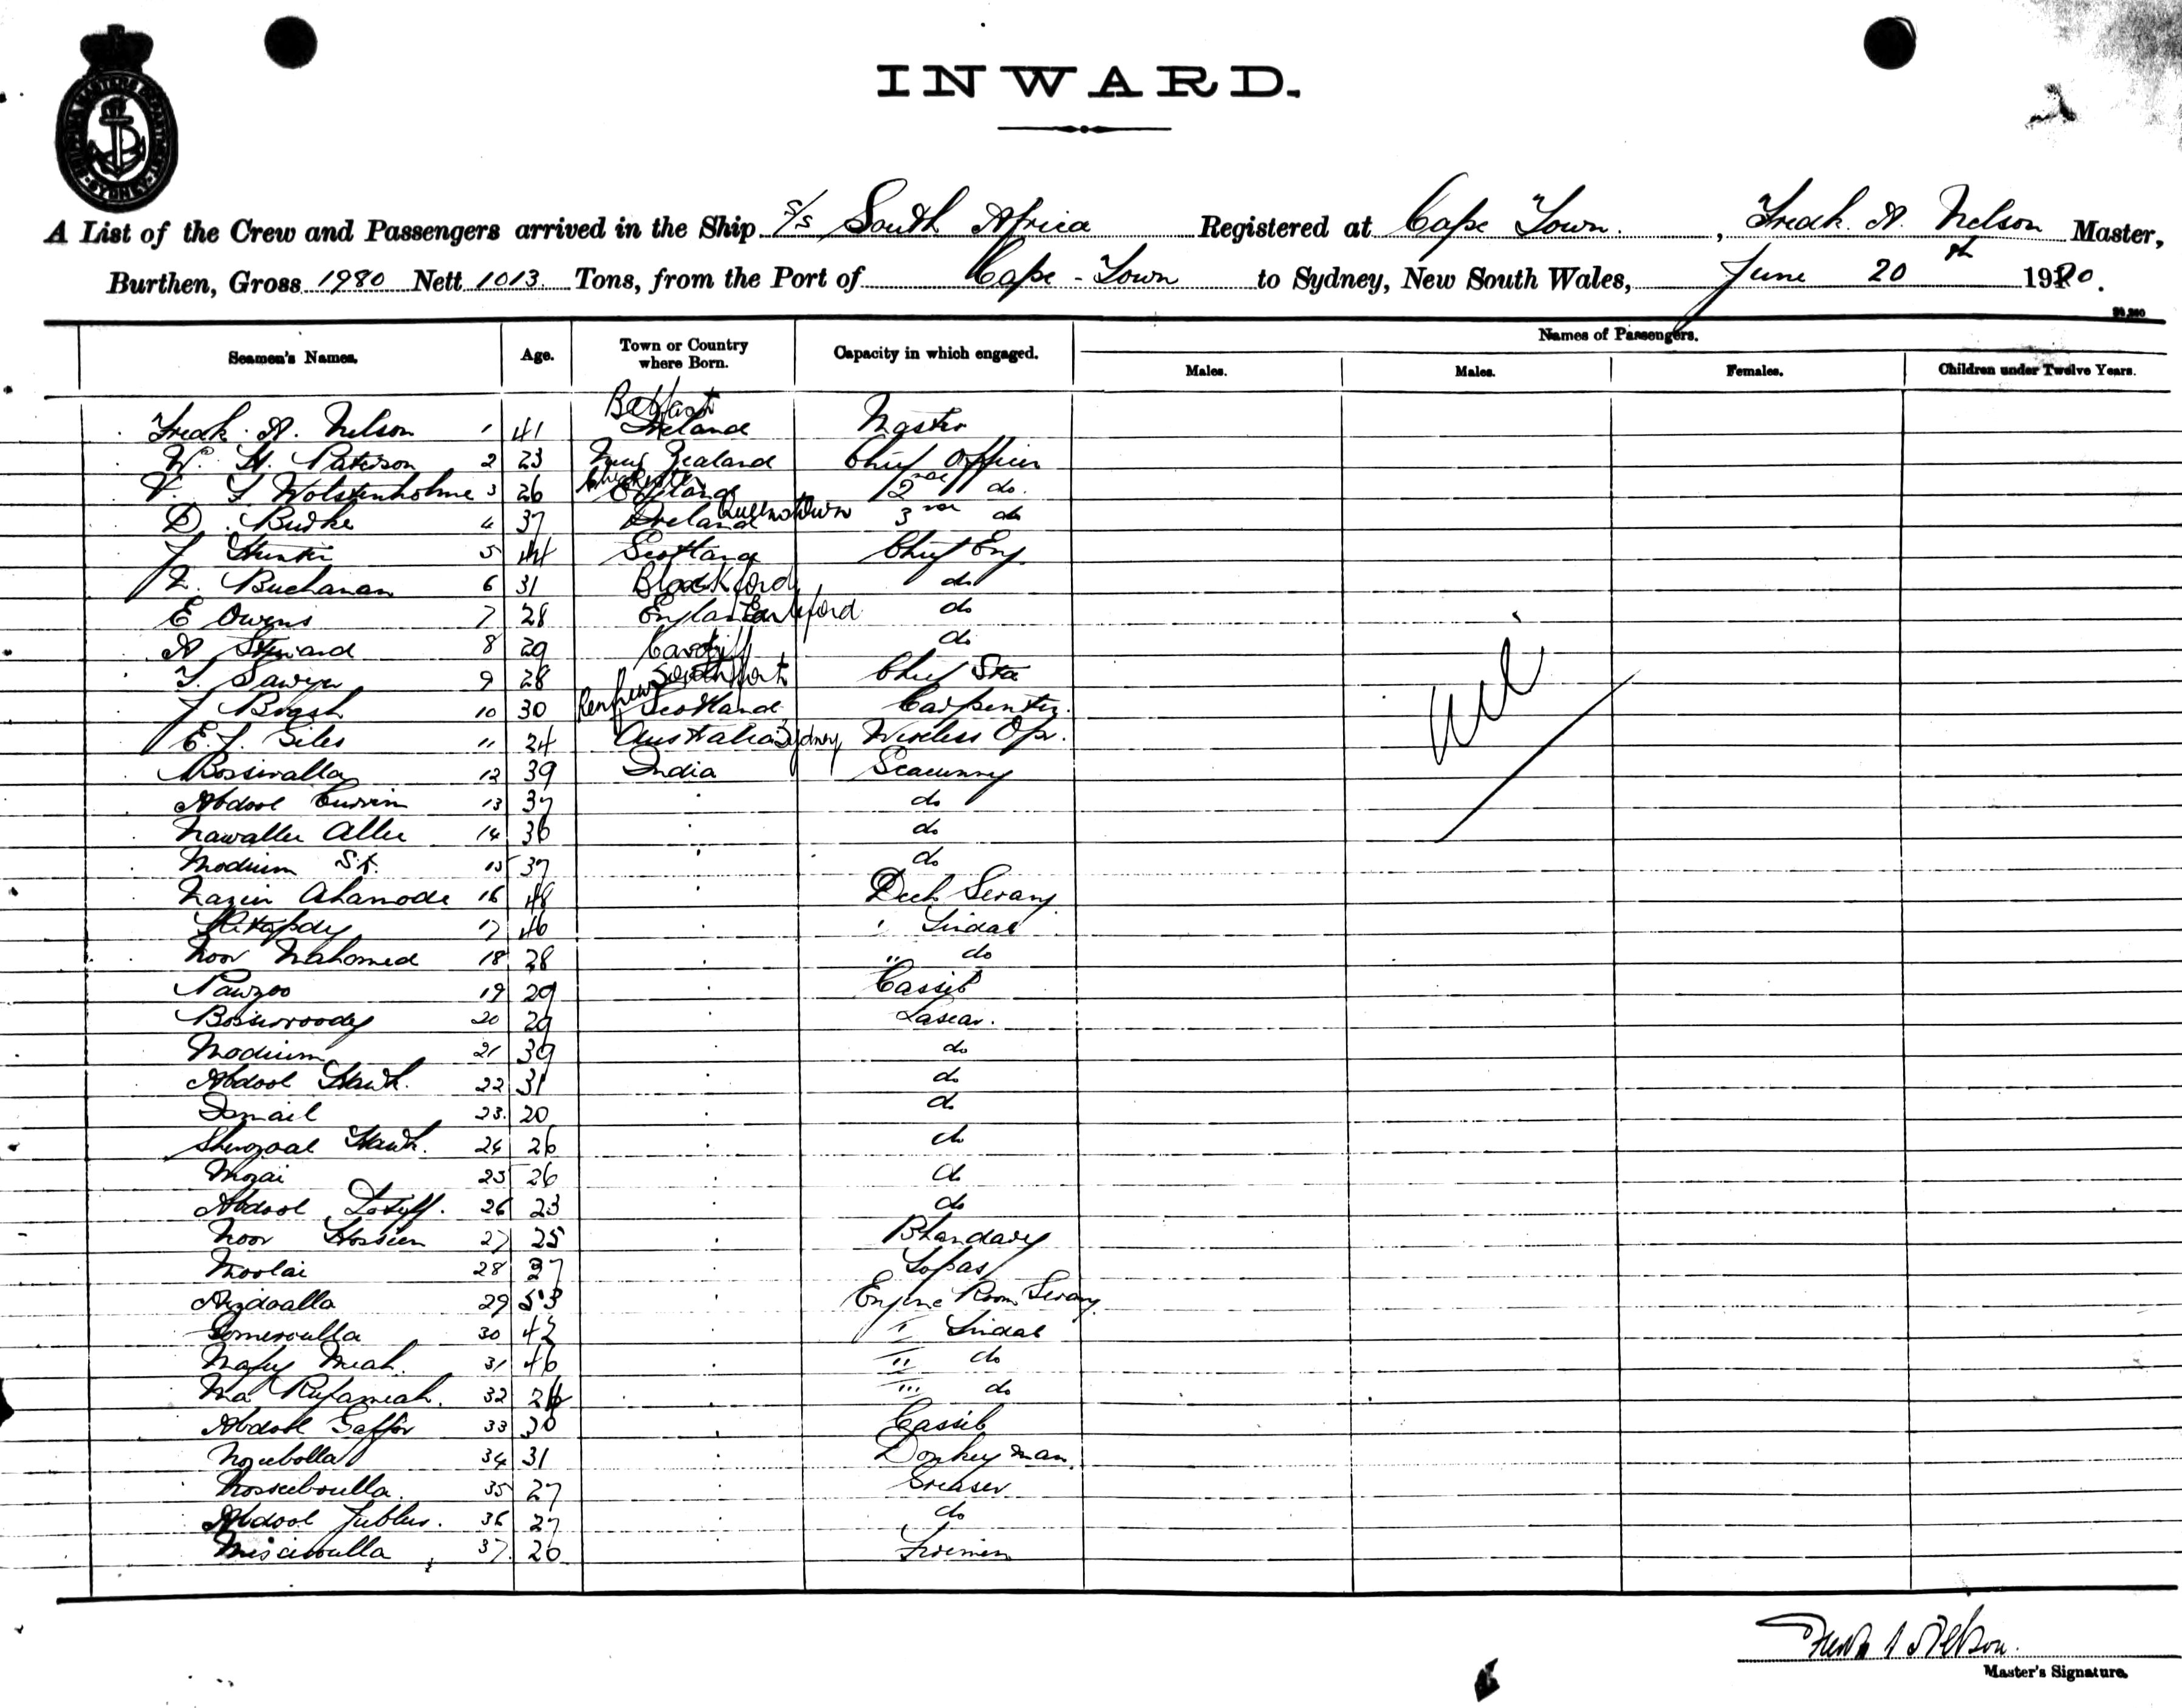 INWARD.
A List of the Crew and Passengers arrived in the Ship S/S South Africa Registered at Cape Town. , Fredk. A. Nelson Master,
Burthen, Gross 1980 Nett 1013 Tons, from the Port of Cape-Town to Sydney, New South Wales, June 20th 1920.
Names of Passengers.
Seamen's Names. Age. Town or Country where Born. Capacity in which engaged. Males. Males. Females. Children under Twelve Years.
Belfast
Fredk. A. Nelson 1 41 Ireland Master
W. H. Paterson 2 23 New Zealand Chief Officer
V. S Wolstenholme 3 26 England 2nd do.
D. Burke 4 37 Ireland Queenstown 3rd do
J Hunter 5 44 Scotland Chief Eng.
Buchanan 6 31 Blackford do
E Owens 7 28 England do
A Steward 8 29 Cardiff do
Sawyer 9 28 Southport Chief Std
J Brash 10 30 Renfrew Scotland Carpenter.
E. J. Giles 11 24 Australia Sydney Wireless Opr.
Bossiralla 12 39 India Seacunny
Abdool Currim 13 37 do
Nawallee Allee 14 36 do
Modium Sk. 15 37 do
Nazeer Ahamode 16 48 Deck Serang
17 46 Tindal
Noor Mahomed 18 28 " do
Nawzoo 19 29 Cassib
20 29 Lascar.
Modium 21 39 do
Abdool Hawk. 22 31 do
Ismail 23. 20 do
Hawk. 24 26 do
Mozai 25 26 do
Abdool Lotiff. 26 23 do
Noor Hossien 27 25 Bhandary
Moolai 28 37 Topas
29 53 Engine Room Serang
Gomeroulla 30 42 I Tindal
Nafey Meah. 31 46 II do
Ma Rufameah. 32 III do
Abdool Gaffor 33 30 Cassib
Nozubolla 34 31 Donkey man.
Nossuboulla. 35 27 Greaser
Abdool Jubbur. 36 27 do
37. 20 Firemen
nil
Master's Signature.